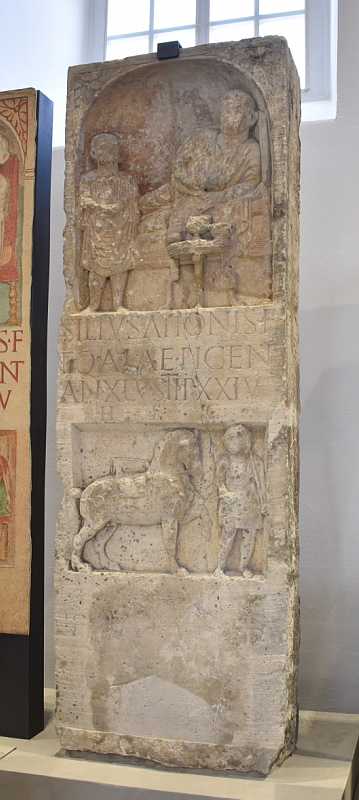 SILIVS ATTONIS F
EQ ALAE PICEN
AN XLV STIP XXIV
H F C
S·F
EN
V